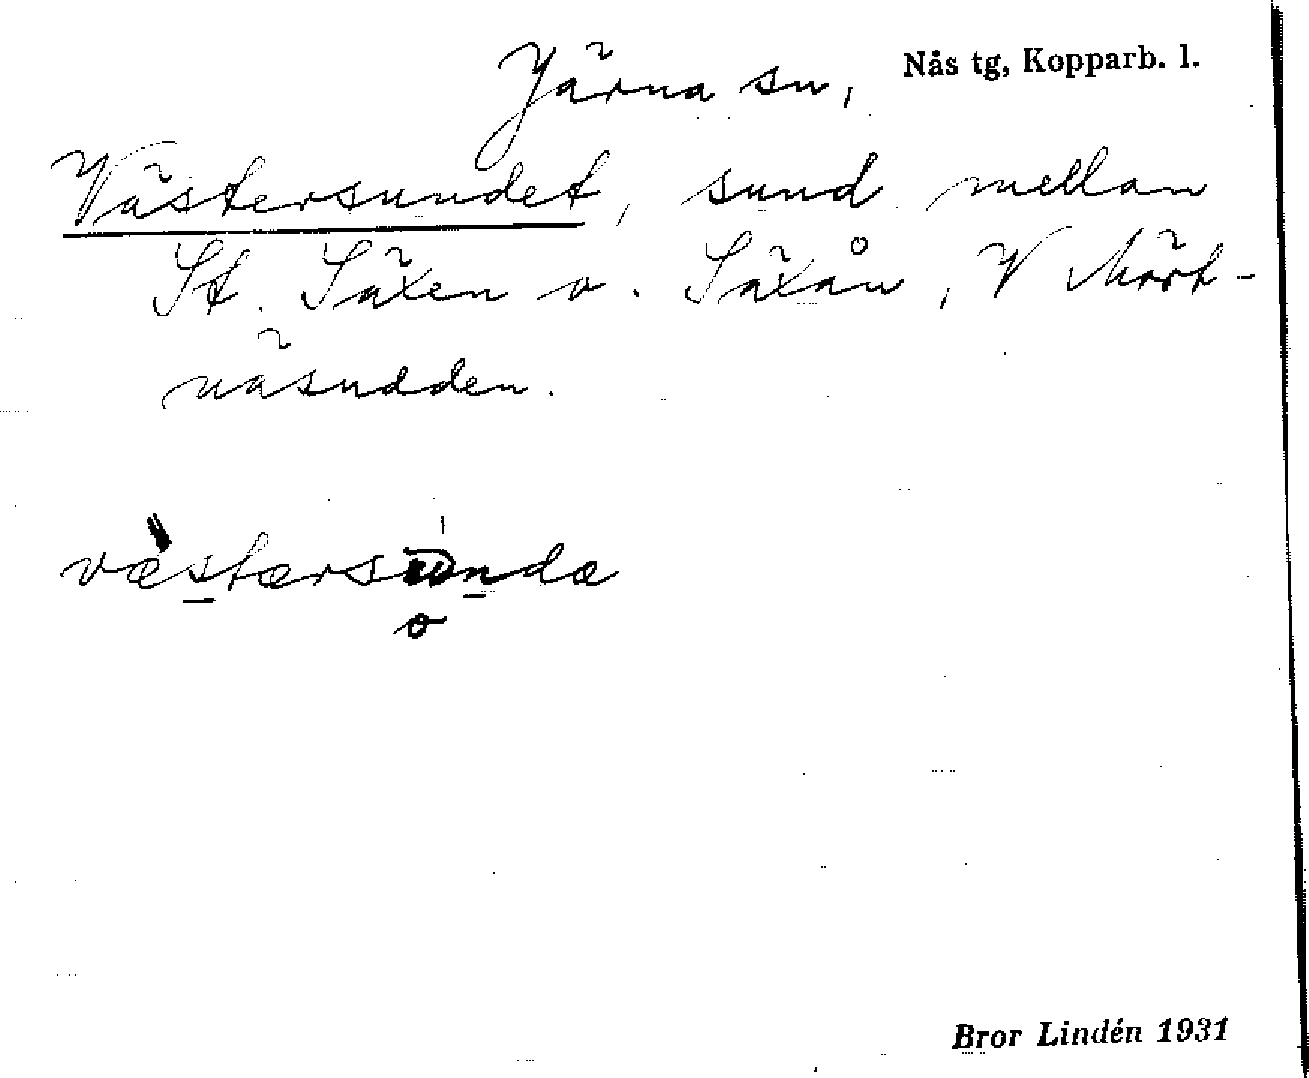 Järna sn, Nås tg, Kopparb. l.
Västersundet, sund mellan
St. Säxen o. Säxån, V Mört-
näsudden.
væstærsundæ
o
Bror Lindén 1931